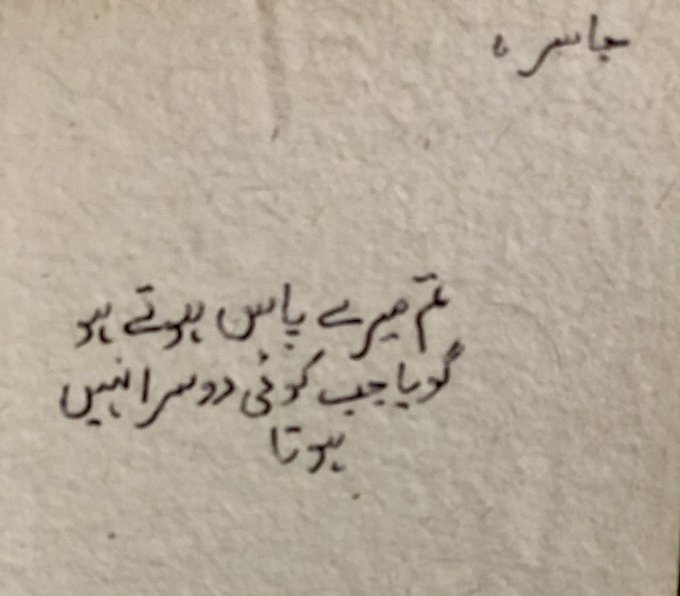 جاسرہ
تم میرے پاس ہوتے ہو
گویا جب کوئی دوسرا نہیں
ہوتا